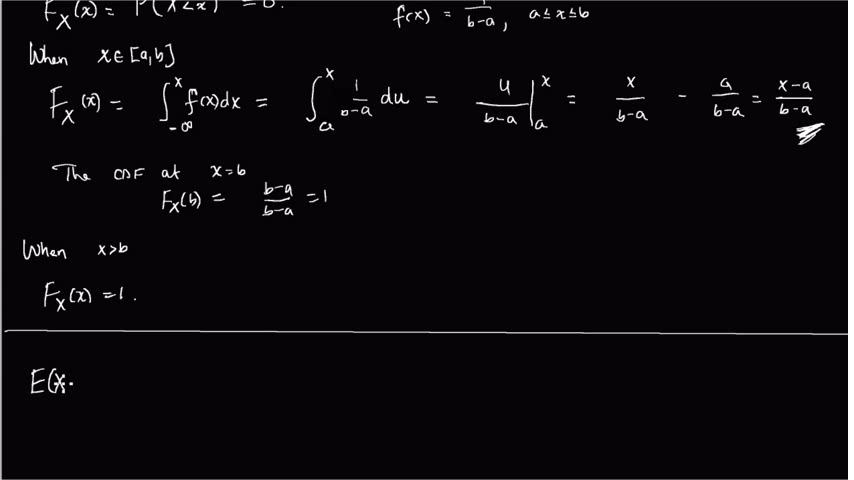 F_X(x) = P(X<x) = 0.
f(x) = 1/(b-a), a ≤ x ≤ b
When x ∈ [a,b]
F_X(x) = ∫_{-∞}^{x} f(x)dx = ∫_{a}^{x} 1/(b-a) du = u/(b-a) |_{a}^{x} = x/(b-a) - a/(b-a) = (x-a)/(b-a)
The CDF at x=b
F_X(b) = (b-a)/(b-a) = 1
When x>b
F_X(x) = 1.
E(X